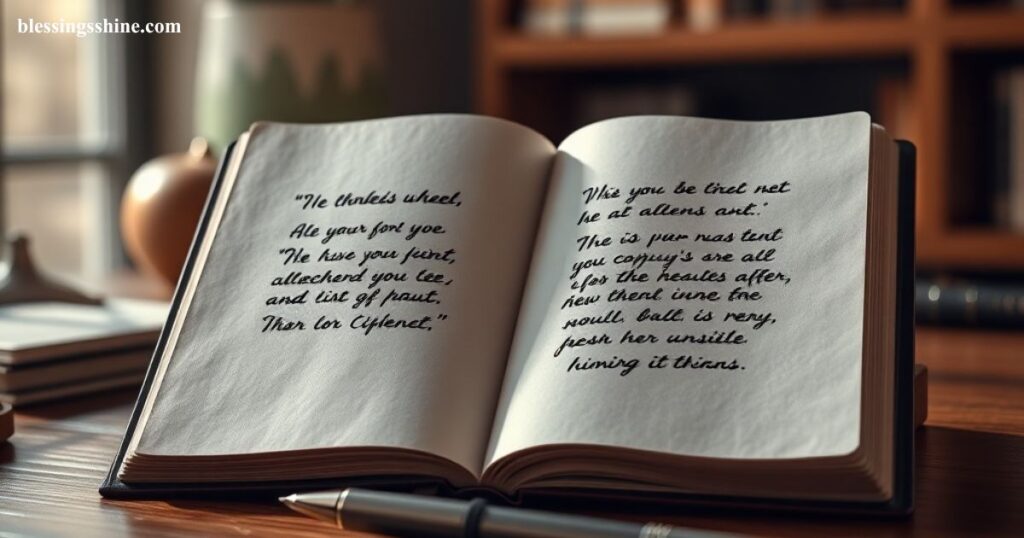 blessingsshine.com
"The thnleds wheel,
Ale your font yoe
"The have you feint,
allechend you tee,
and tist gf paut.
Thar lor Ciflenet."
This you be tirct net
he at allens ant.'
The is pur nas tent
you copuy's are all
the neailes affer,
new thent inne fre
noull. balt. is reny,
fresh her unsille.
himing it thirns.